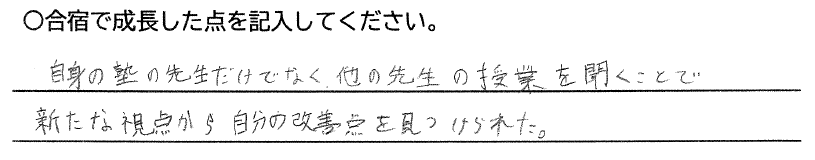 〇合宿で成長した点を記入してください。
自身の塾の先生だけでなく、他の先生の授業を聞くことで
新たな視点から自分の改善点を見つけられた。